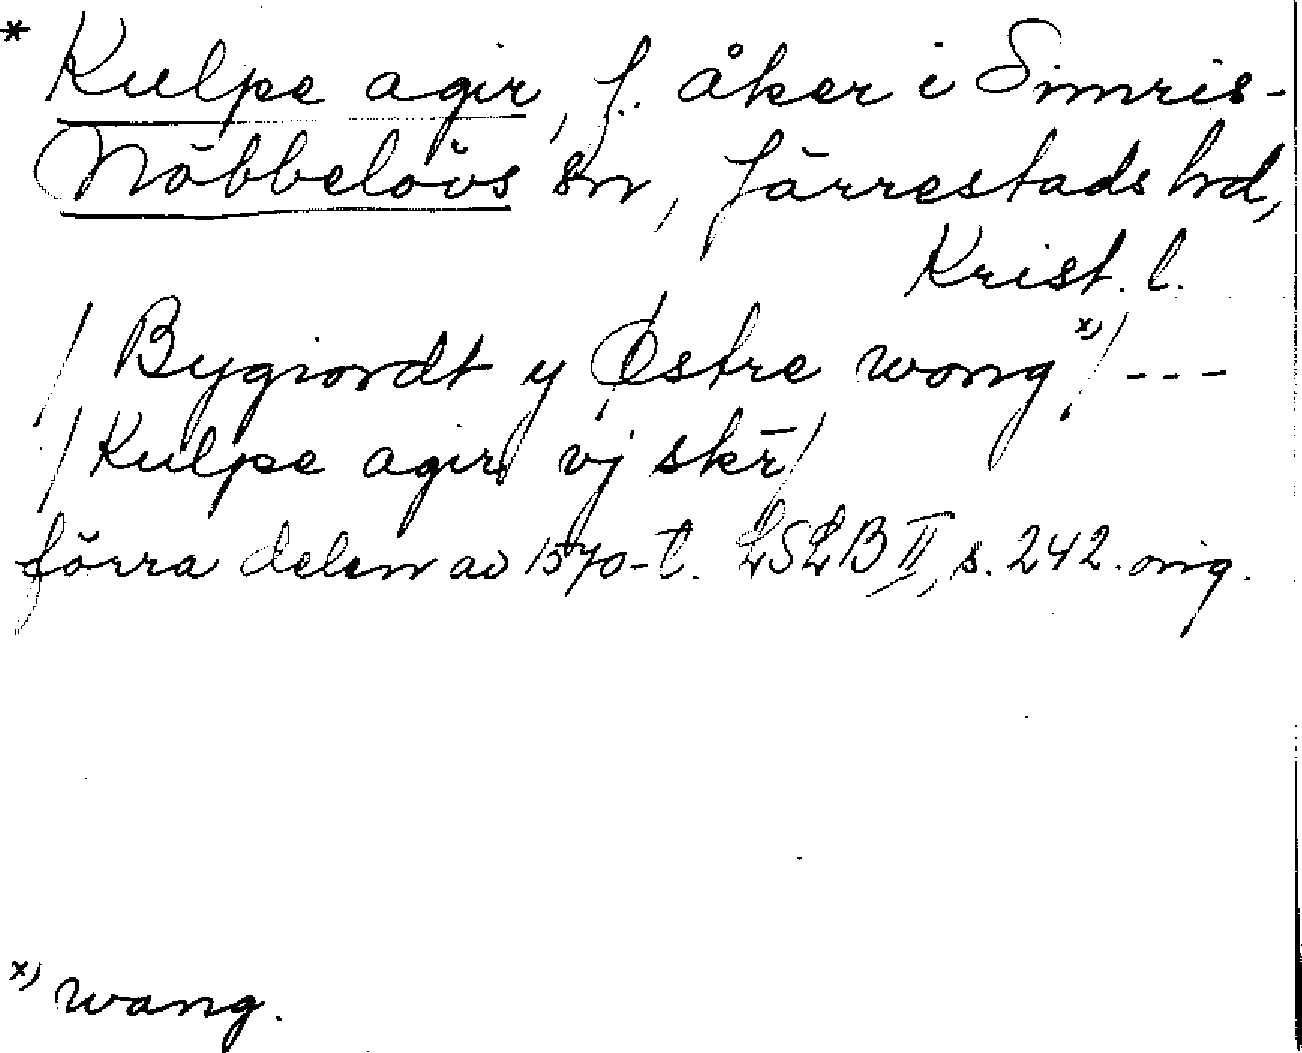 * Kulpe agir, f. åker i Simris-
Nöbbelövs sn, Järrestads hd,
Krist. l.
/ Bygiordt y Østre wong x) / ---
/ Kulpe agir vj skr̄ /
förra delen av 1570-t. LSLB II, s. 242. orig.
x) wang.